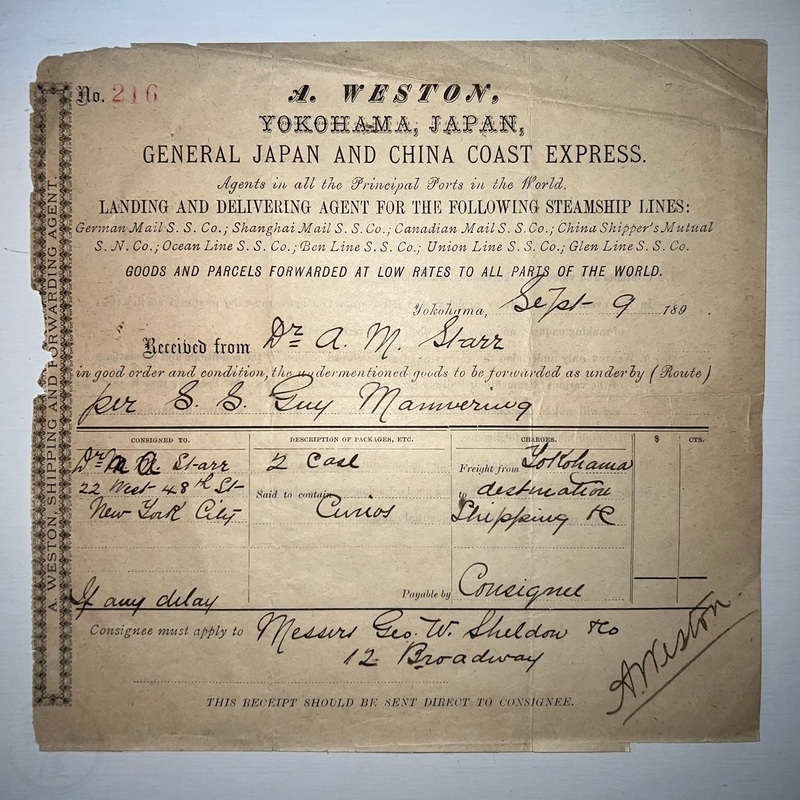 No. 216
A. WESTON,
YOKOHAMA, JAPAN,
GENERAL JAPAN AND CHINA COAST EXPRESS.
Agents in all the Principal Ports in the World.
LANDING AND DELIVERING AGENT FOR THE FOLLOWING STEAMSHIP LINES:
German Mail S. S. Co.; Shanghai Mail S. S. Co.; Canadian Mail S. S. Co.; China Shipper's Mutual
S. N. Co.; Ocean Line S. S. Co.; Ben Line S. S. Co.; Union Line S. S. Co.; Glen Line S. S. Co.
GOODS AND PARCELS FORWARDED AT LOW RATES TO ALL PARTS OF THE WORLD.
Yokohama, Sept 9 189 .
Received from Dr A. M. Starr
in good order and condition, the undermentioned goods to be forwarded as under by (Route)
per S. S. Guy Mannering
CONSIGNED TO. DESCRIPTION OF PACKAGES, ETC. CHARGES. $ CTS.
Dr A. Starr 2 Case Freight from Yokohama
22 West 48th St Said to contain to destination
New York City Curios Shipping &c
If any delay Payable by Consignee
Consignee must apply to Messers Geo. W. Sheldon & Co
12 Broadway
A Weston
THIS RECEIPT SHOULD BE SENT DIRECT TO CONSIGNEE.
A. WESTON, SHIPPING AND FORWARDING AGENT.